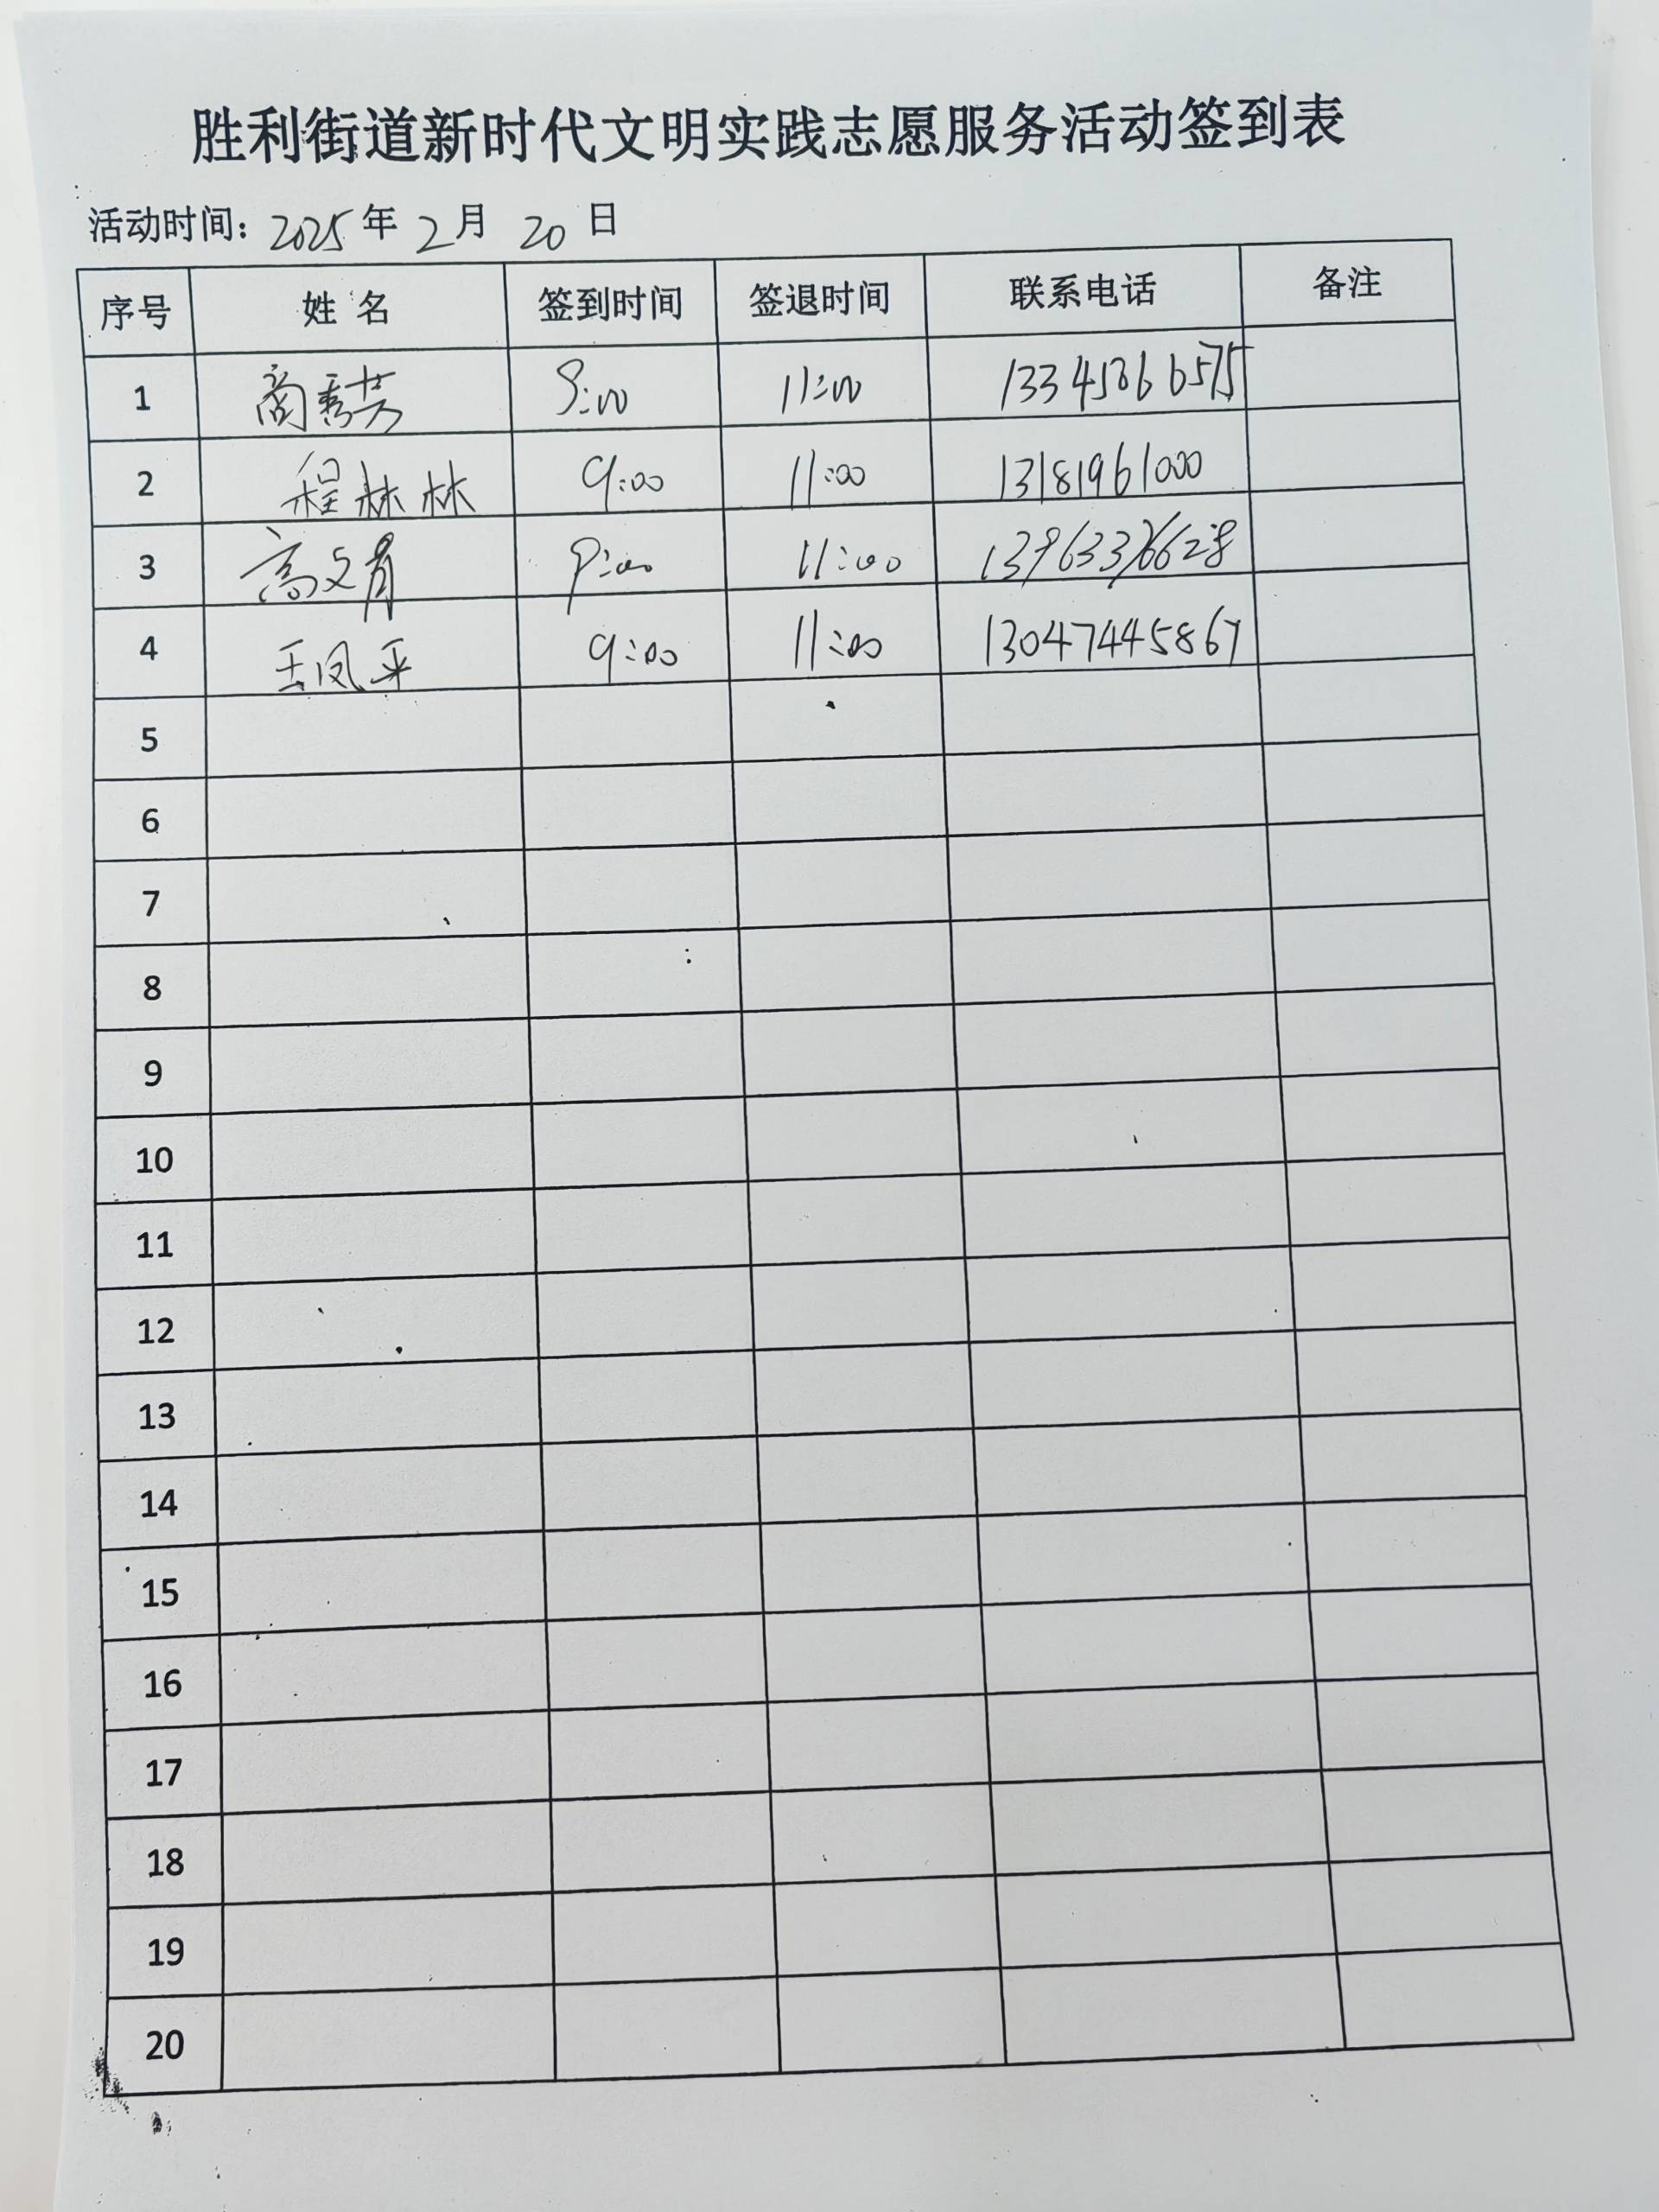 胜利街道新时代文明实践志愿服务活动签到表
活动时间: 2025年 2月 20日
序号 姓名 签到时间 签退时间 联系电话 备注
1 商秀芳 9:00 11:00
2 程林林 9:00 11:00 13181961000
3 高文 9:00 11:00
4 王凤平 9:00 11:00 13047445867
5
6
7
8
9
10
11
12
13
14
15
16
17
18
19
20